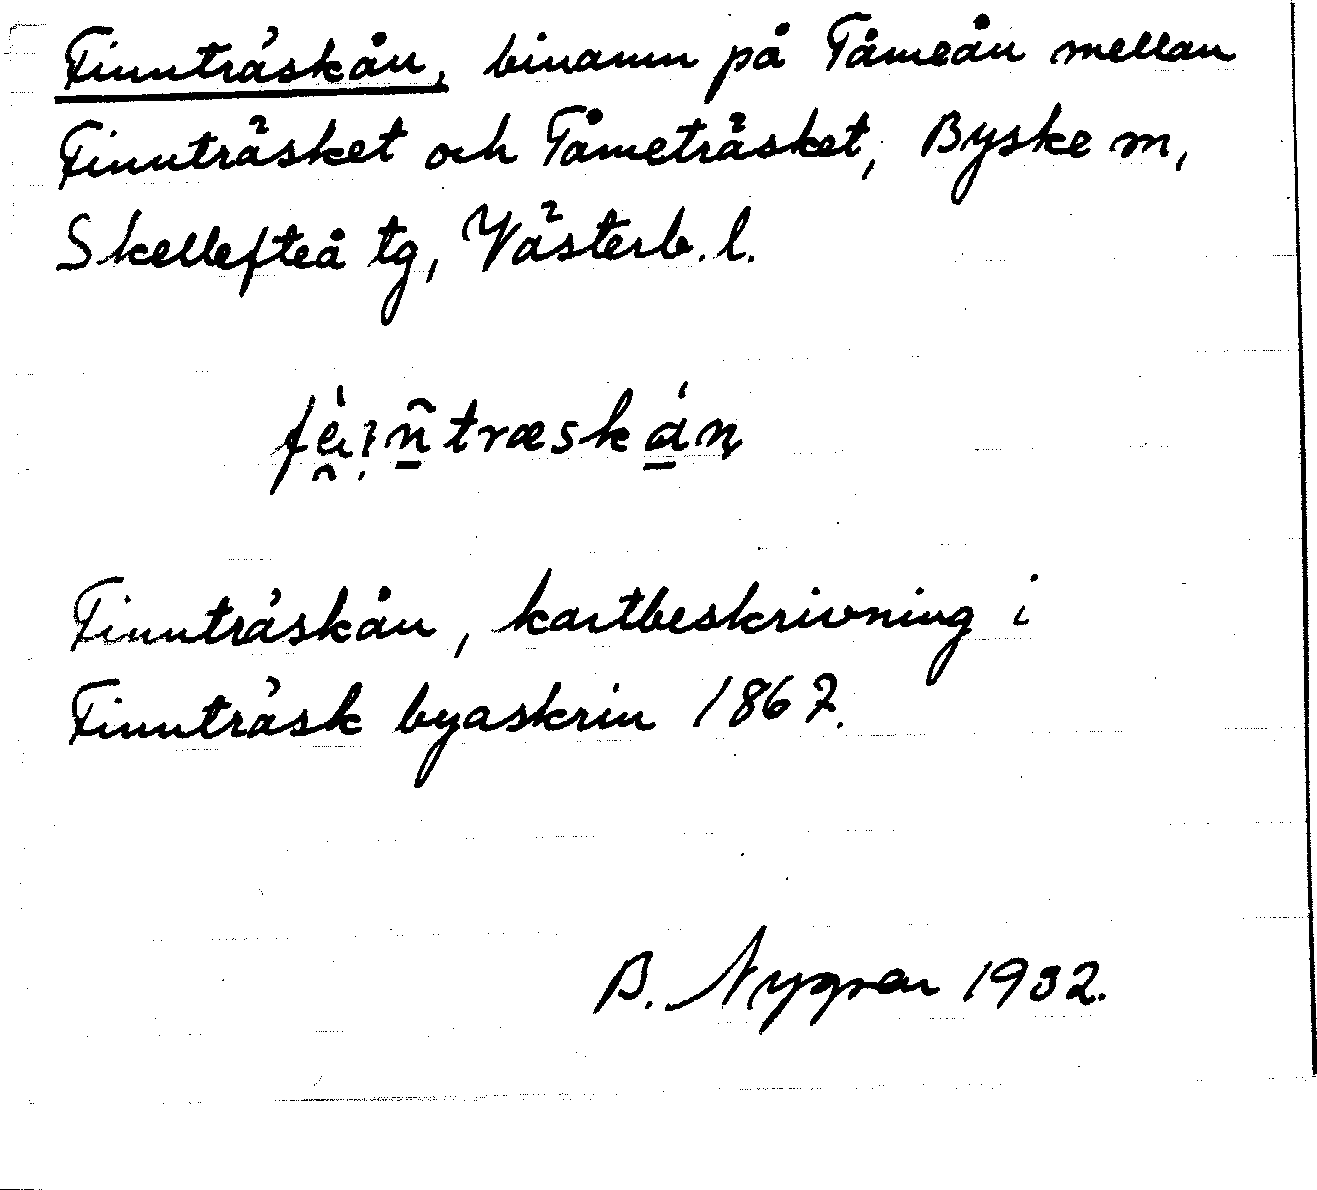 Finnträskån, binamn på Tåmeån mellan
Finnträsket och Tåmeträsket, Byske sn,
Skellefteå tg, Västerb. l.
Finnträskån, kartbeskrivning i
Finnträsk byaskrin 1867.
B. Nygren 1932.